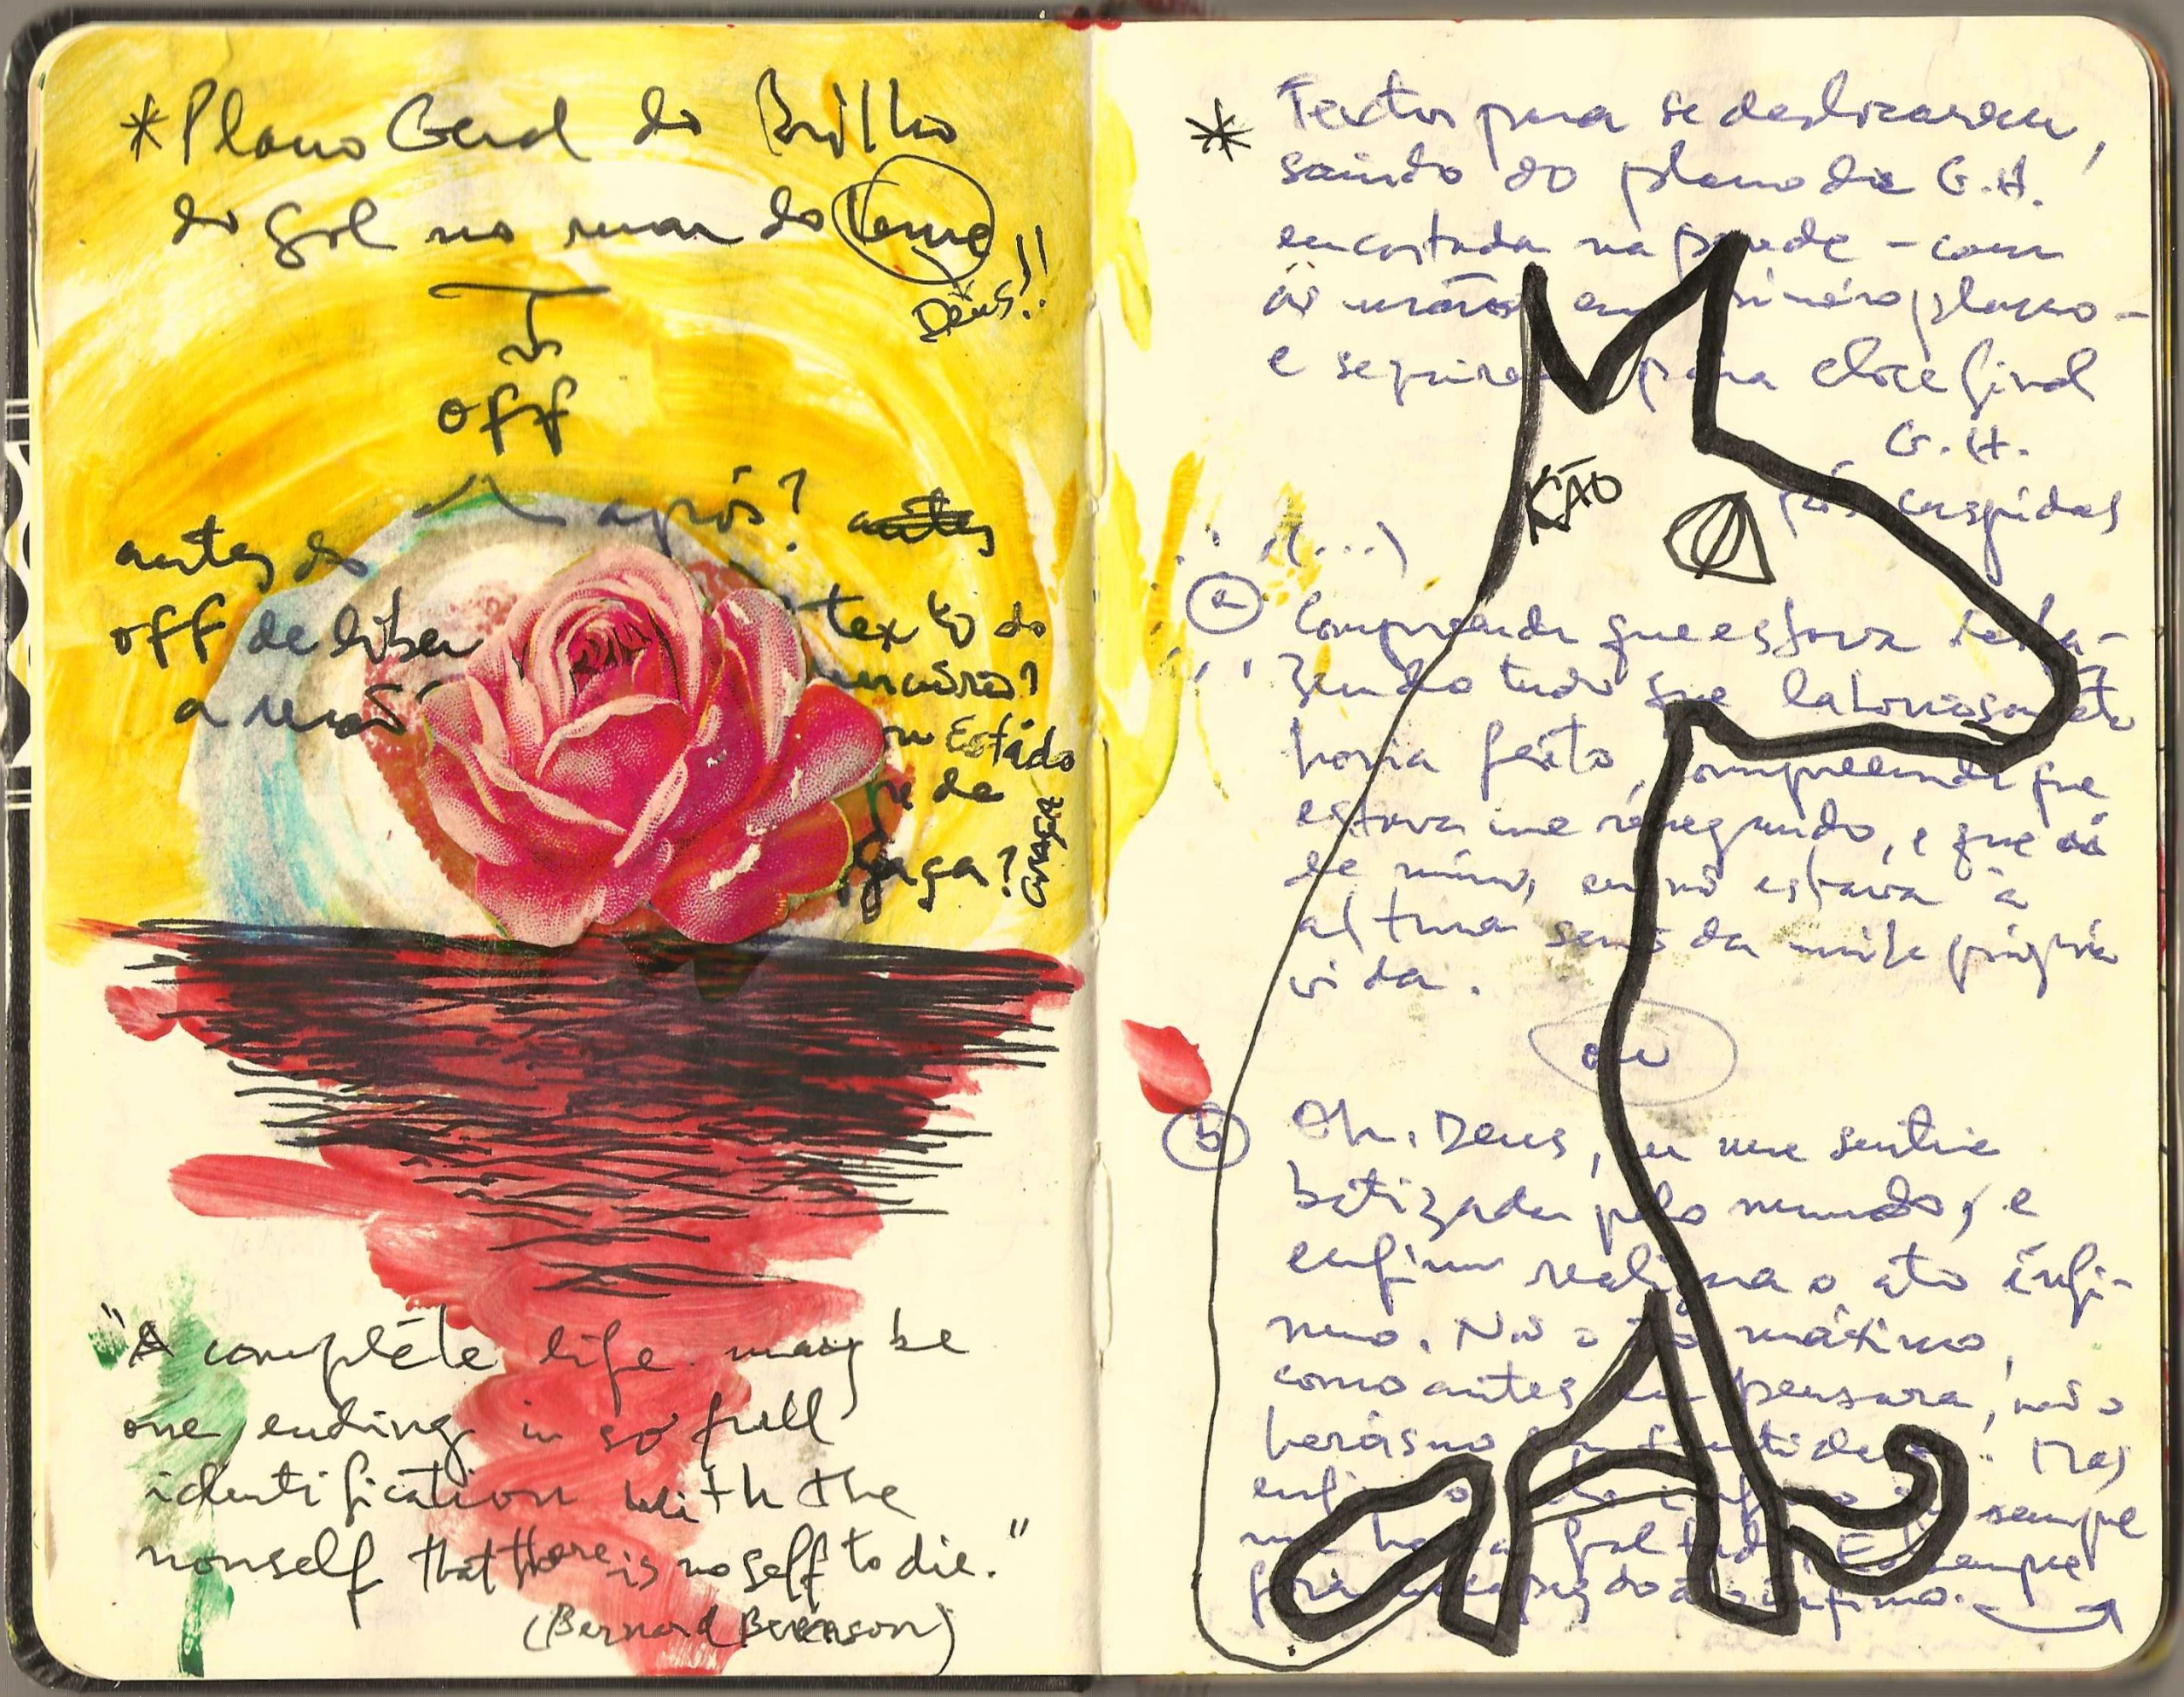 *Plano Geral do Brilho
do Sol no mar do Leme
Deus!!
off
após? antes
antes do
off deliber
a mão
texto do
ou Estado
de
Gaga?
"A complete life may be
one ending in so full
identification with the
nonself that there is no self to die."
(Bernard Berenson)
* Textos para se deslizarem,
saindo do plano de G.H.
encostada na parede – com
as mãos em primeiro plano –
e seguirem para close final
G.H.
KÃO
pós cuspidas
(...)
a Compreendi que estava
tudo que laboriosamente
havia feito, compreendi que
estava me renegando, e que
de mim, eu não estava à
altura senão da minha própria
vida.
ou
b Oh, Deus, eu me sentia
batizada pelo mundo, e
enfim realizara o ato ínfi-
mo. Não o ato máximo,
como antes eu pensara, não o
heroísmo e a santidade. Mas
enfim o ato ínfimo que sempre
me havia faltado. Eu sempre
fora incapaz do ato ínfimo.